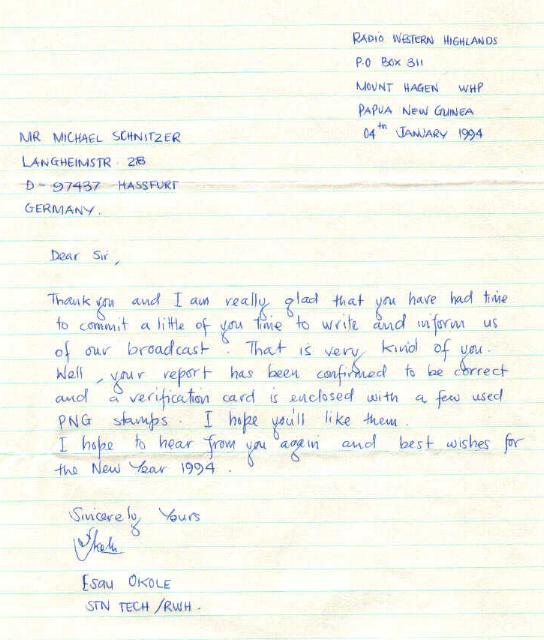 RADIO WESTERN HIGHLANDS
P.O BOX 311
MOUNT HAGEN WHP
PAPUA NEW GUINEA
04th JANUARY 1994
MR MICHAEL SCHNITZER
LANGHEIMSTR. 28
D- 97437 HASSFURT
GERMANY.
Dear Sir,
Thank you and I am really glad that you have had time
to commit a little of you time to write and inform us
of our broadcast. That is very kind of you.
Well, your report has been confirmed to be correct
and a verification card is enclosed with a few used
PNG stamps. I hope you'll like them.
I hope to hear from you again and best wishes for
the New Year 1994.
Sincerely Yours
Esau OKOLE
STN TECH /RWH.